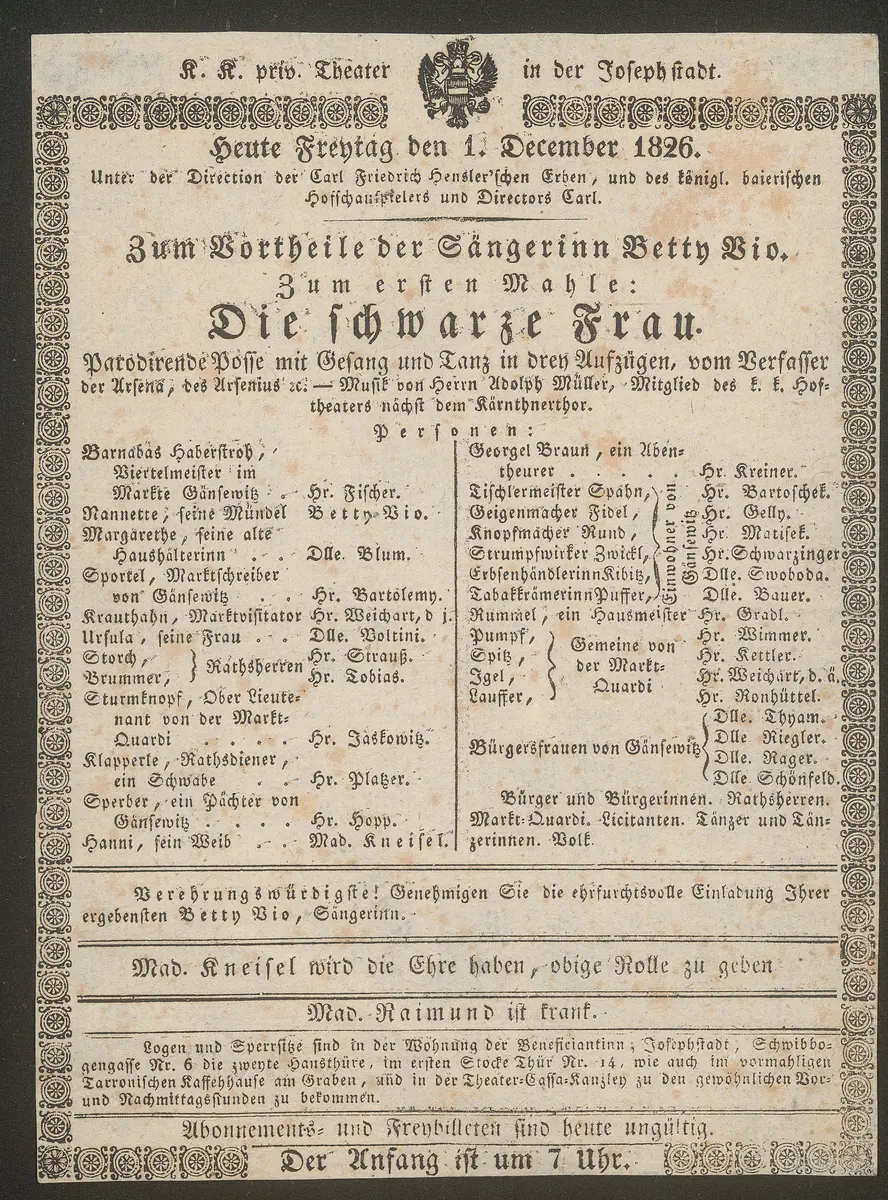 K. K. priv. Theater in der Josephstadt.
Heute Freytag den 1. December 1826.
Unter der Direction der Carl Friedrich Hensler'schen Erben, und des königl. baierischen
Hofschauspielers und Directors Carl.
Zum Vortheile der Sängerinn Betty Vio.
Zum ersten Mahle:
Die schwarze Frau.
Parodirende Posse mit Gesang und Tanz in drey Aufzügen, vom Verfasser
der Arsena, des Arsenius ꝛc. — Musik von Herrn Adolph Müller, Mitglied des k. k. Hof-
theaters nächst dem Kärnthnerthor.
Personen:
Barnabas Haberstroh,
Viertelmeister im
Markte Gänsewitz . Hr. Fischer.
Nannette, seine Mündel Betty Vio.
Margarethe, seine alte
Haushälterinn . . Dlle. Blum.
Sportel, Marktschreiber
von Gänsewitz . . Hr. Bartolemy.
Krauthahn, Marktvisitator Hr. Weichart, d j.
Ursula, seine Frau . . Dlle. Voltini.
Storch, } Rathsherren Hr. Strauß.
Brummer, Hr. Tobias.
Sturmknopf, Ober Lieute-
nant von der Markt-
Quardi . . . . Hr. Jaskowitz.
Klapperle, Rathsdiener,
ein Schwabe . . Hr. Platzer.
Sperber, ein Pächter von
Gänsewitz . . . . Hr. Hopp.
Hanni, sein Weib . . Mad. Kneisel.
Georgel Braun, ein Aben-
theurer . . . . . Hr. Kreiner.
Tischlermeister Spahn, Hr. Bartoschek.
Geigenmacher Fidel, Hr. Gelly.
Knopfmacher Rund, Hr. Matisek.
Strumpfwirker Zwickl, Hr. Schwarzinger
Erbsenhändlerinn Kibitz, Dlle. Swoboda.
Tabakkrämerinn Puffer, Dlle. Bauer.
Einwohner von
Gänsewitz
Rummel, ein Hausmeister Hr. Gradl.
Pumpf, Hr. Wimmer.
Spitz, Hr. Kettler.
Igel, Hr. Weichart, d. ä.
Lauffer, Hr. Ronhüttel.
Gemeine von
der Markt-
Quardi
Bürgersfrauen von Gänsewitz
Dlle. Thyam.
Dlle. Riegler.
Dlle. Rager.
Dlle. Schönfeld.
Bürger und Bürgerinnen. Rathsherren.
Markt-Quardi. Licitanten. Tänzer und Tän-
zerinnen. Volk.
Verehrungswürdigste! Genehmigen Sie die ehrfurchtsvolle Einladung Ihrer
ergebensten Betty Vio, Sängerinn.
Mad. Kneisel wird die Ehre haben, obige Rolle zu geben
Mad. Raimund ist krank.
Logen und Sperrsitze sind in der Wohnung der Beneficiantinn, Josephstadt, Schwibbo-
gengasse Nr. 6 die zweyte Hausthüre, im ersten Stocke Thür Nr. 14, wie auch im vormahligen
Tarronischen Kaffehhause am Graben, und in der Theater-Cassa-Kanzley zu den gewöhnlichen Vor-
und Nachmittagsstunden zu bekommen.
Abonnements- und Freybilleten sind heute ungültig.
Der Anfang ist um 7 Uhr.